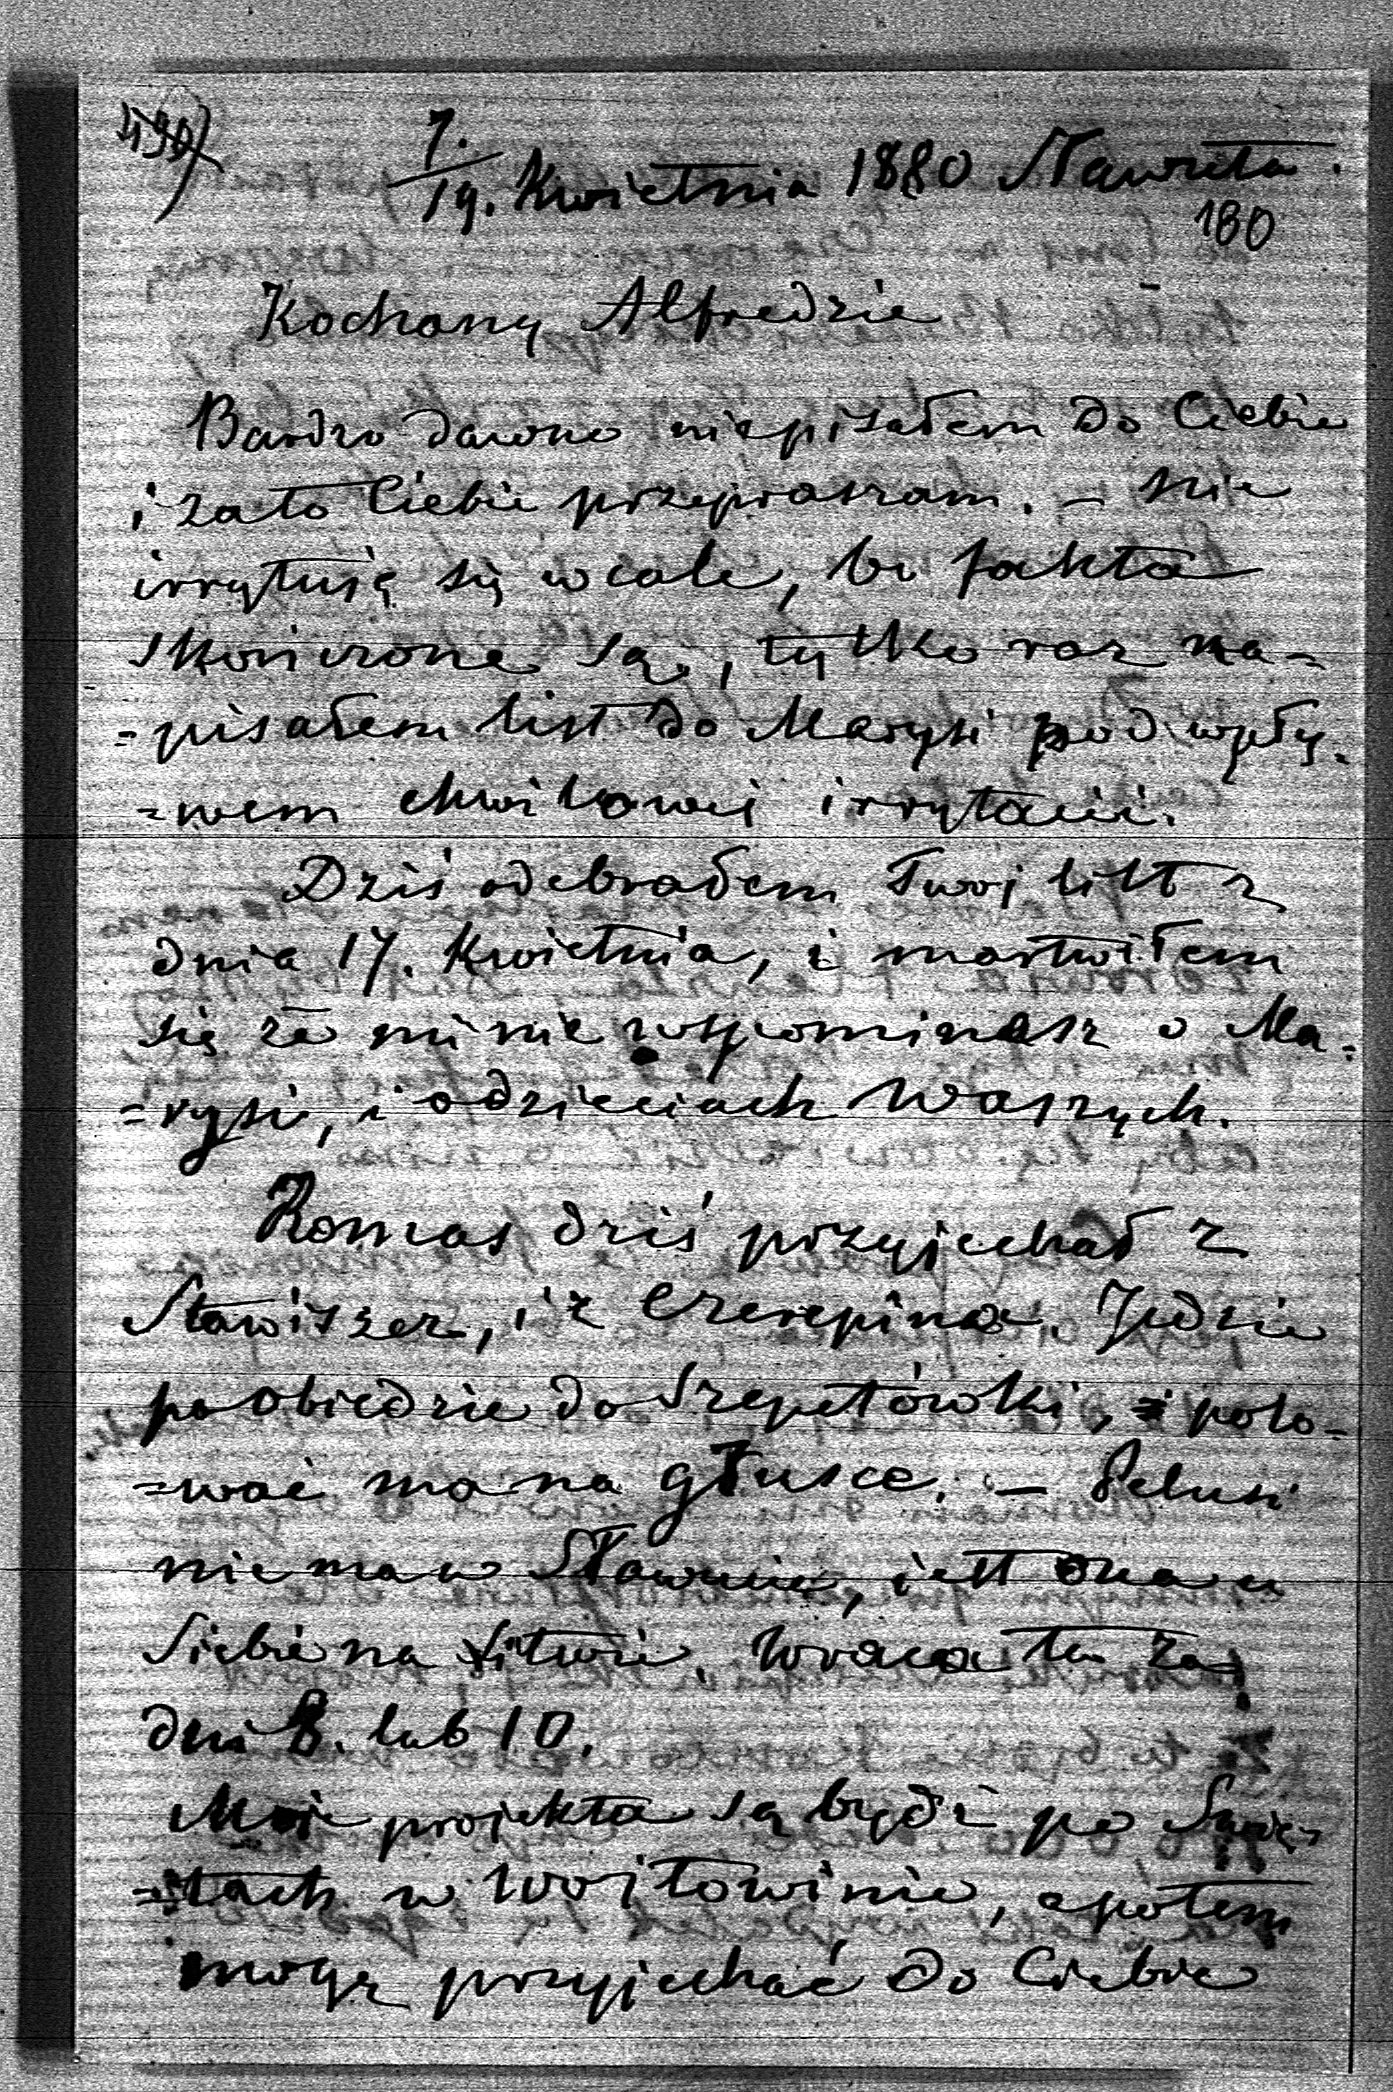 490)
7./19. Kwietnia 1880 Sławuta.
180
Kochany Alfredzie
Bardzo dawno niepisałem do Ciebie
i zato Ciebie przepraszam. – Nie
irrytuję się wcale, bo fakta
skończone są, tylko raz na=
=pisałem list do Marysi pod wpły=
=wem chwilowej irrytacii.
Dziś odebrałem Twoj list z
dnia 17. Kwietnia, i martwiłem
się że mi nie wspominasz o Ma=
=rysi, i o dzieciach Waszych.
Romas dziś przyjechał z
Stawiszcz, i z Czerepina. Jedzie
po obiedzie do Szepetówki, i polo=
=wać ma na głusce. – Pelusi
niema w Sławucie, jest ona u
Siebie na Litwie. Wraca tu za
dni 8. lub 10.
Moje projekta są być po Swię=
=tach w Wojtowinie, a potem
mogę przyjechać do Ciebie